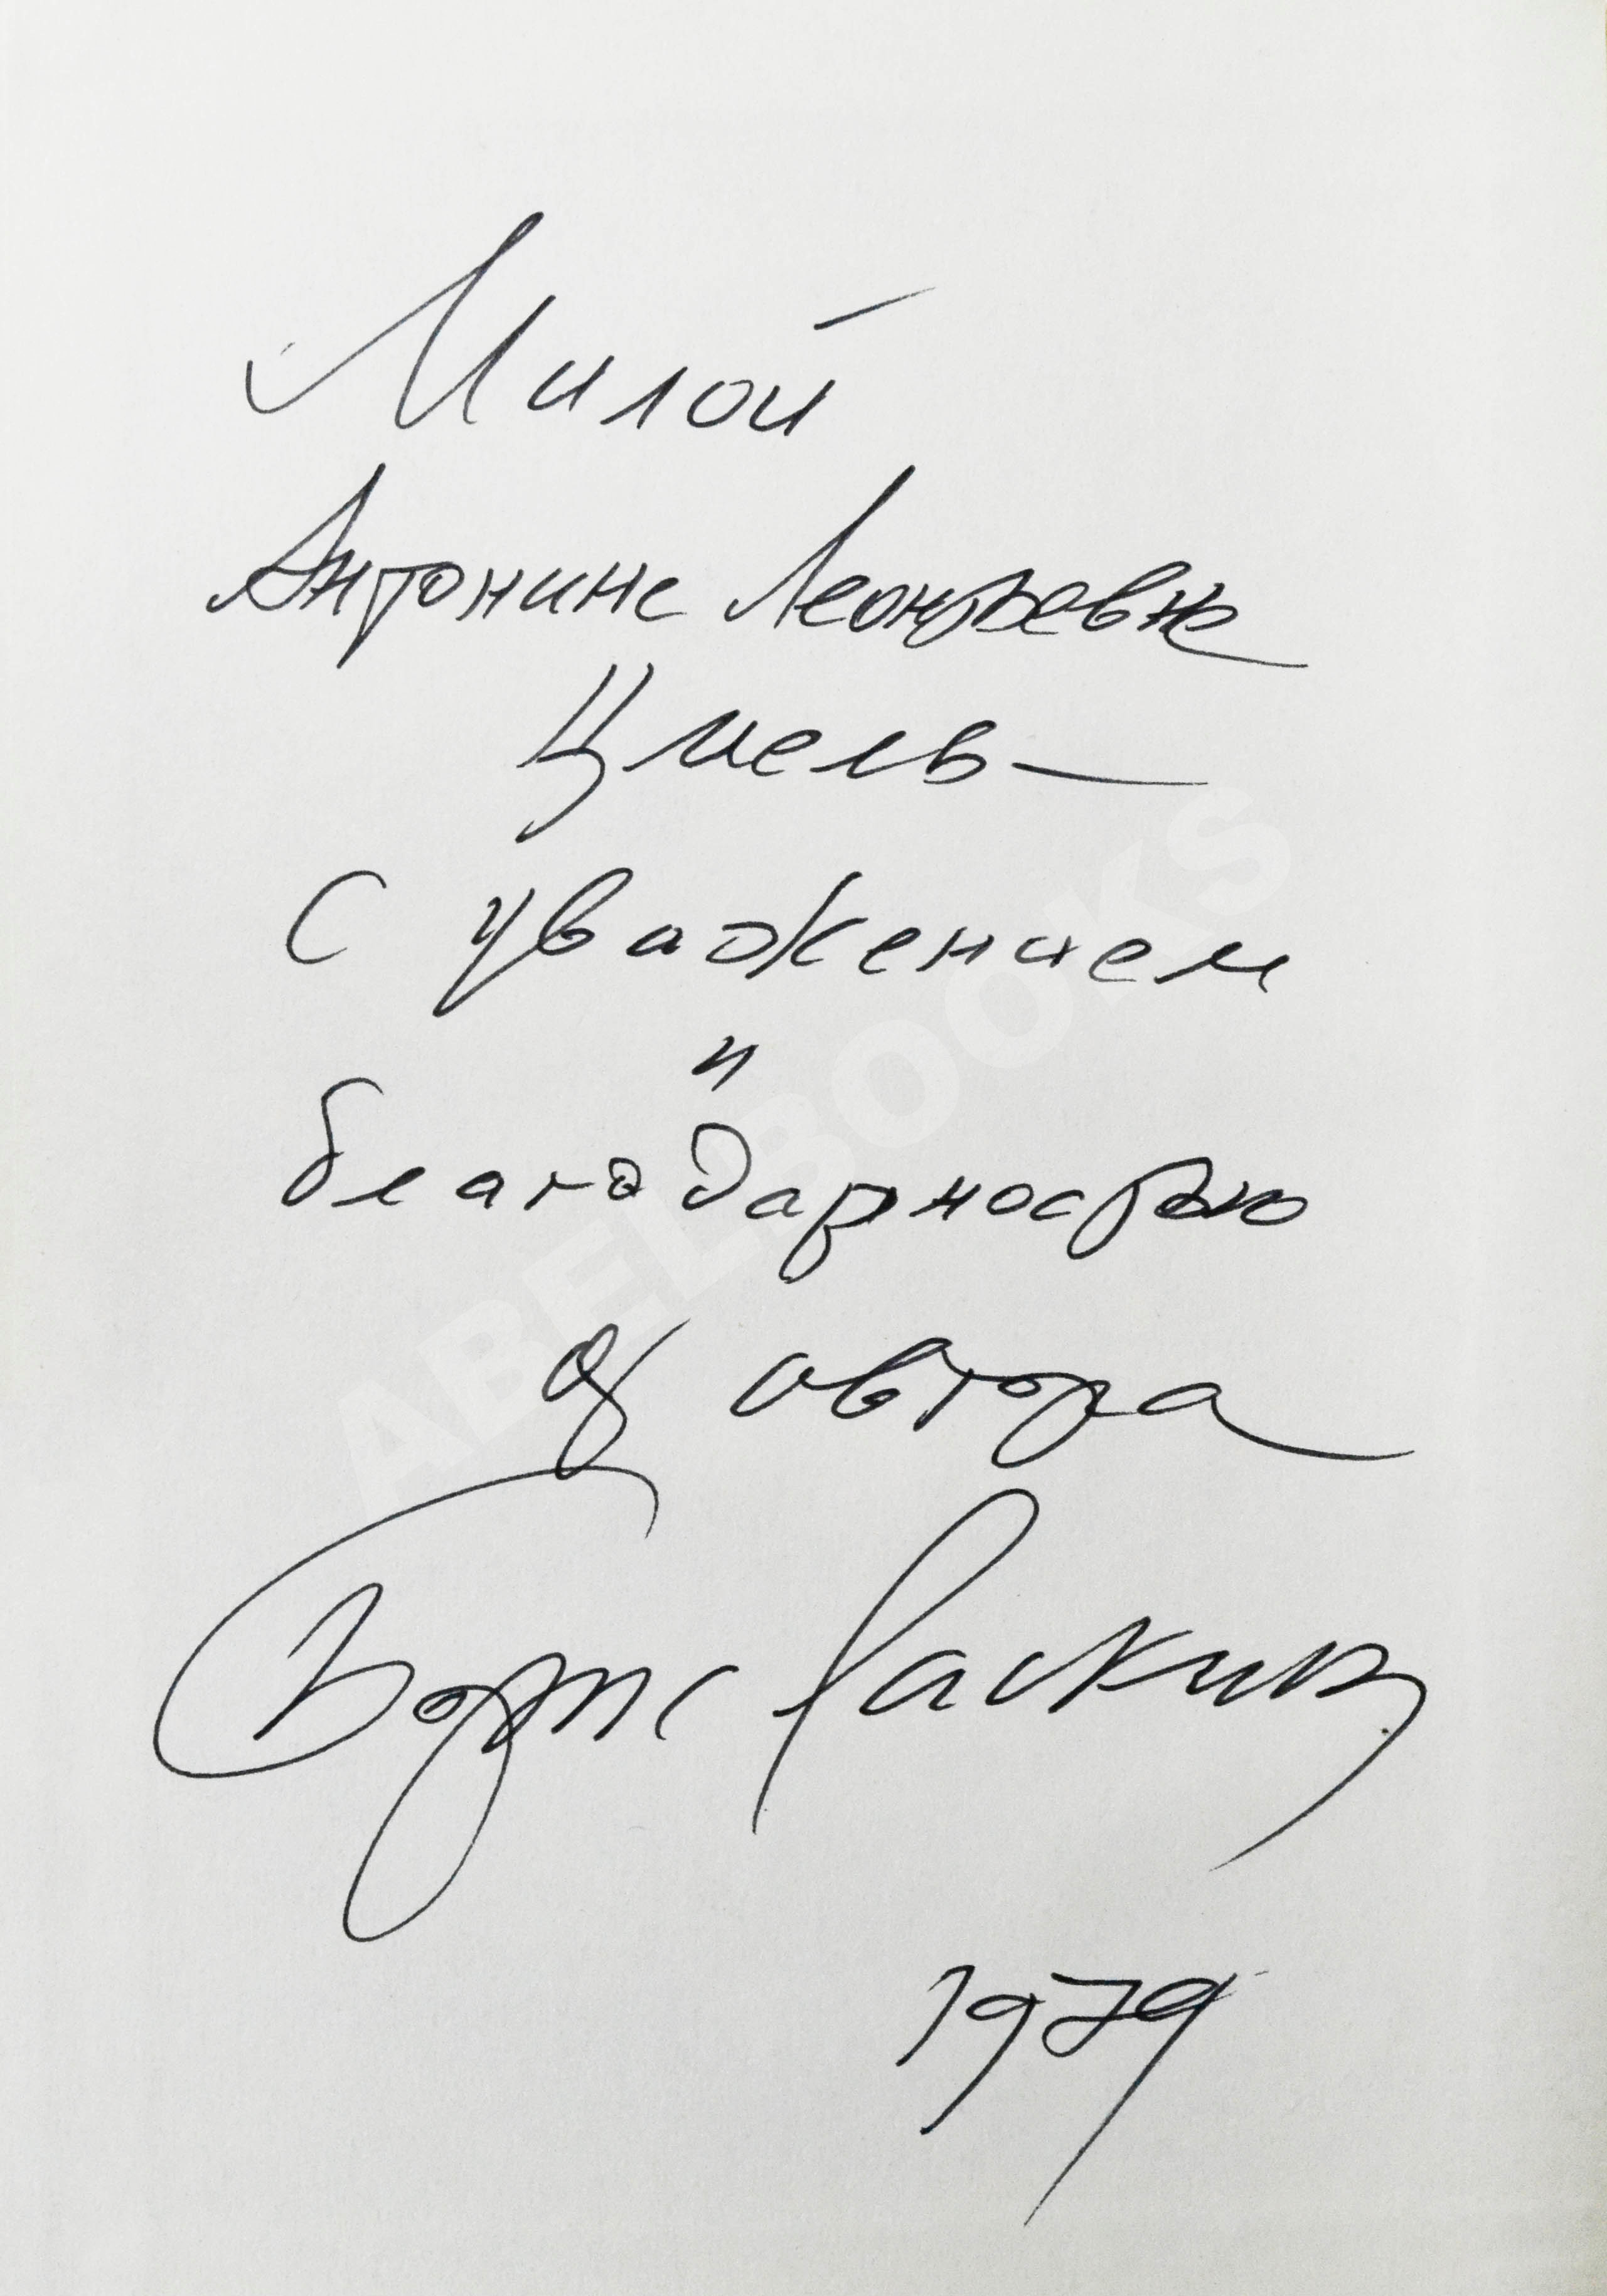 Милой
Антонине Леонтьевне
Цмель —
С уважением
и
благодарностью
от автора
Борис Раскин
1979
ABELBOOKS